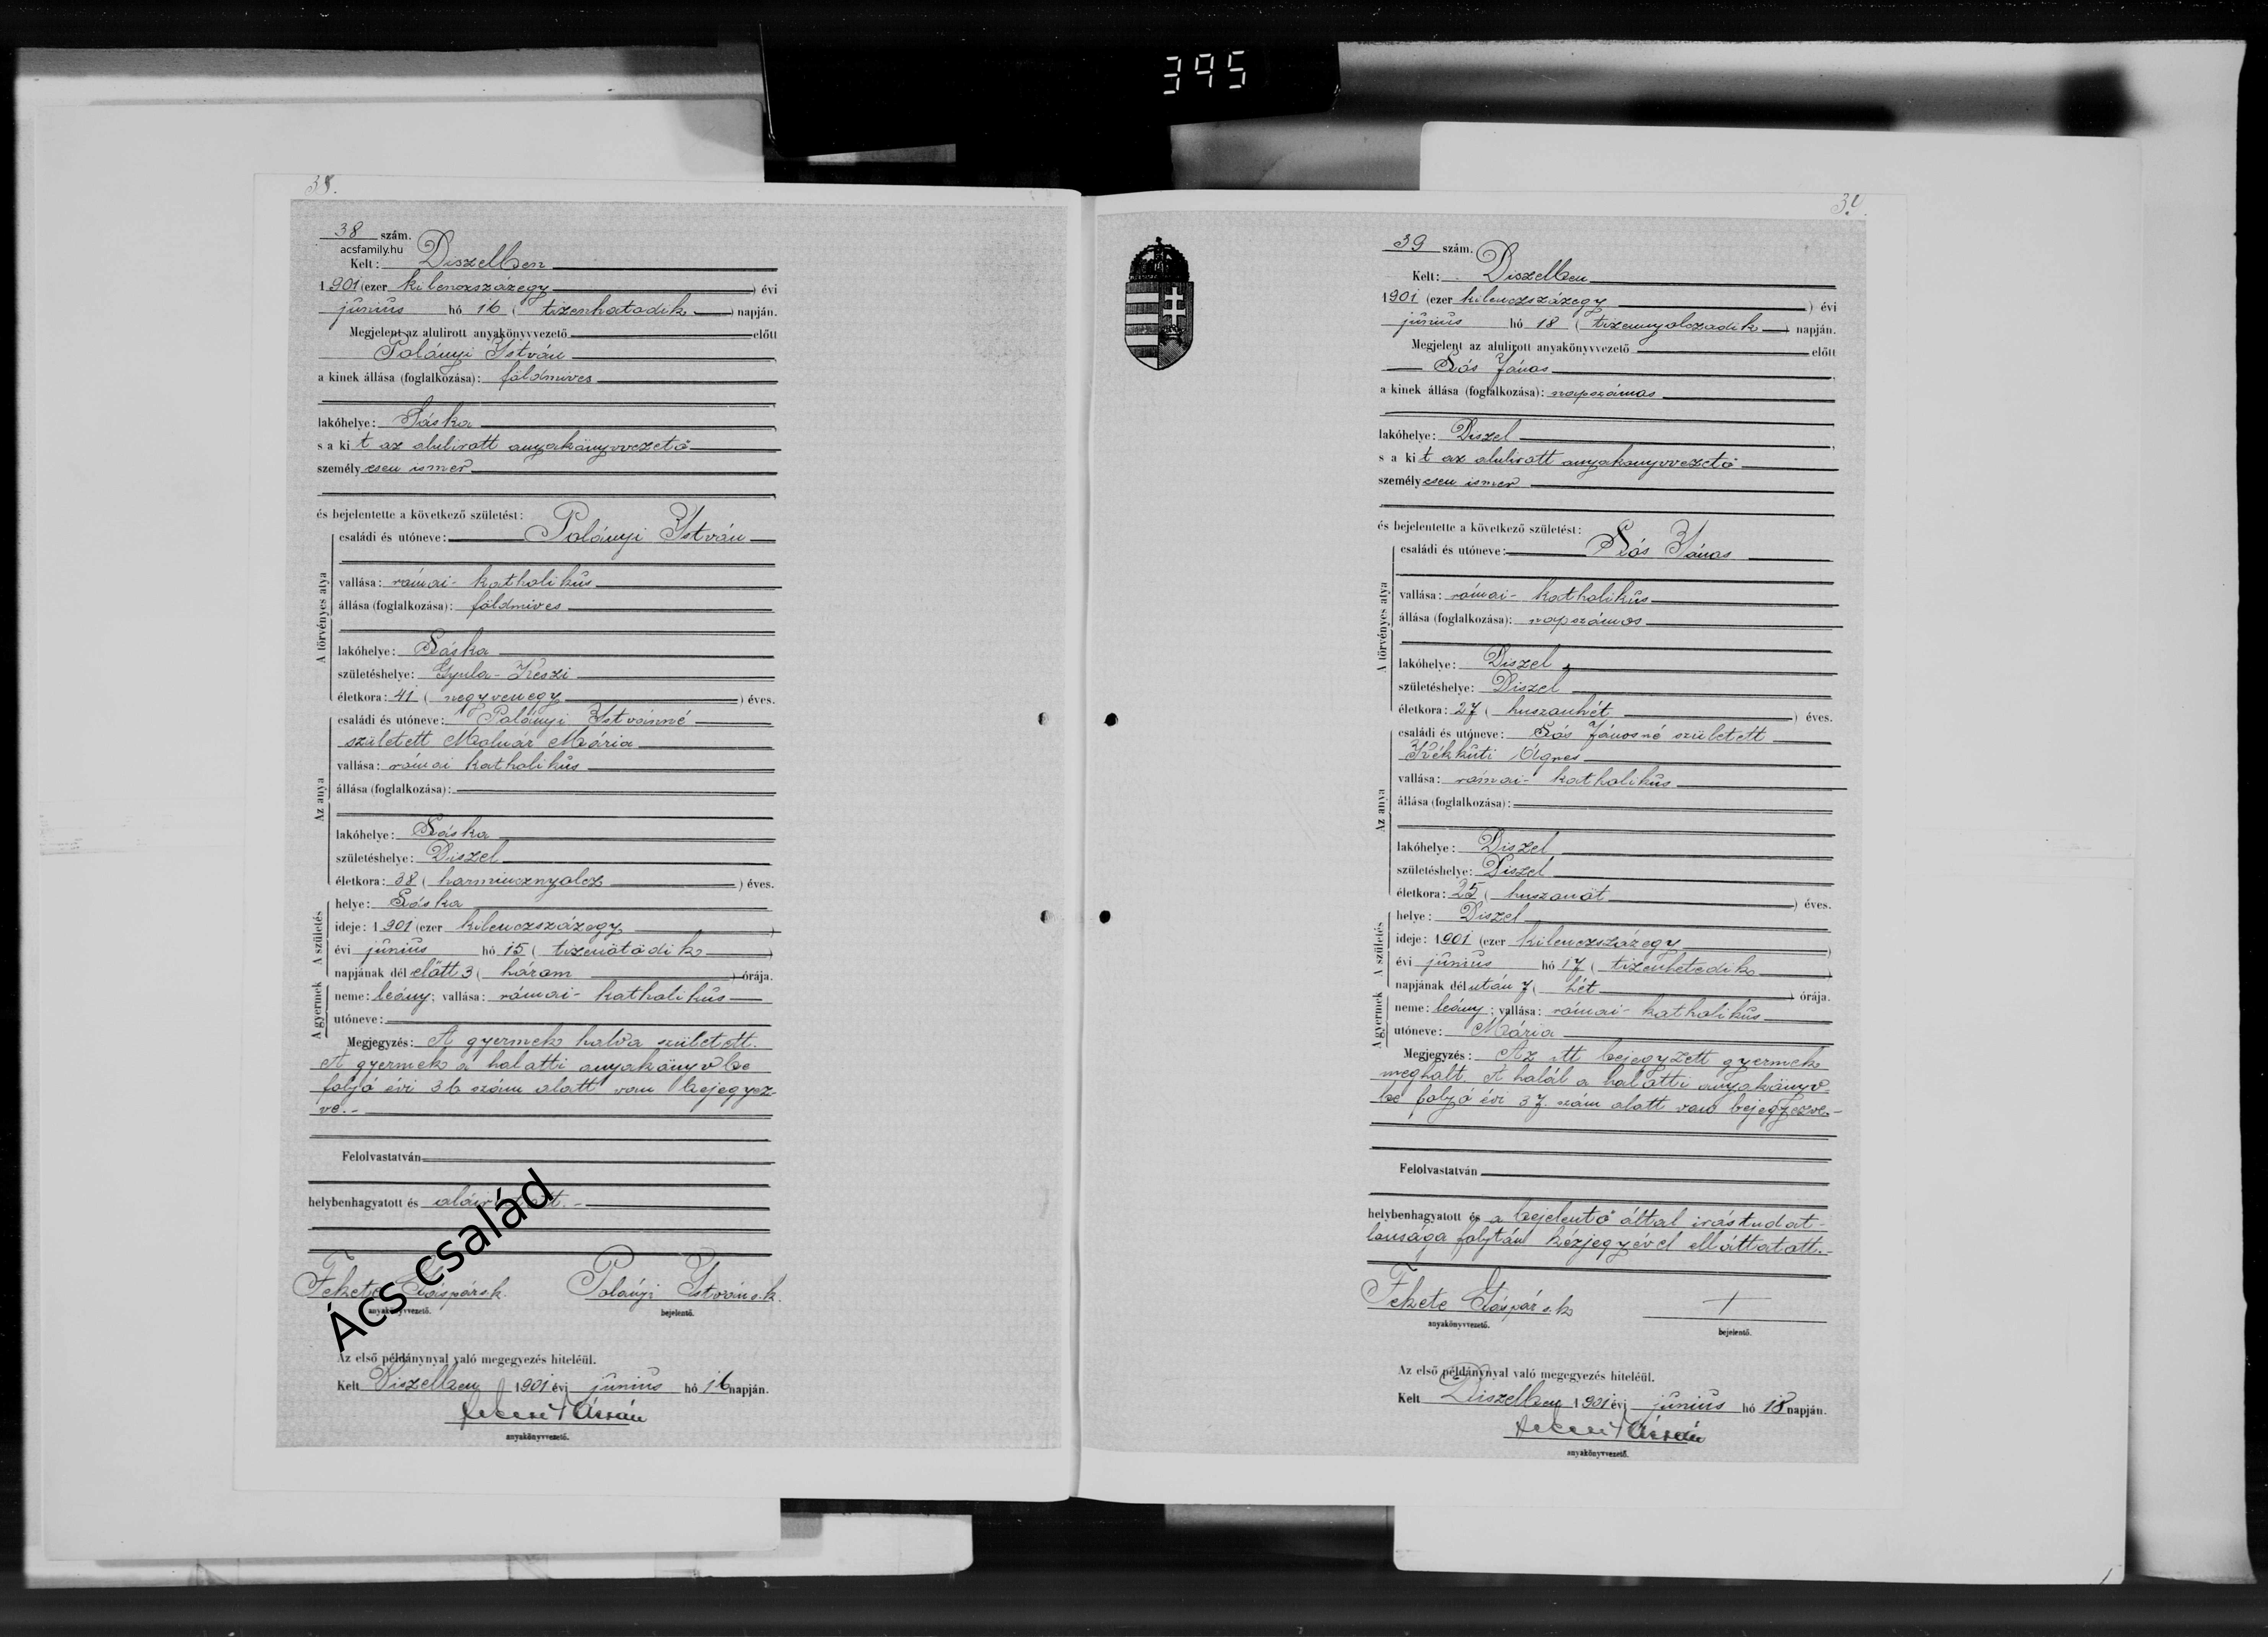 395
38.
38 szám.
acsfamily.hu
Kelt: Diszelben
1901 (ezer kilenczszázegy) évi
június hó 16 (tizenhatodik) napján.
Megjelent az alulirott anyakönyvvezető előtt
Polányi István
a kinek állása (foglalkozása): földmives
lakóhelye: Sáska
s a kit az alulirott anyakönyvvezető
személyesen ismer
és bejelentette a következő születést:
A törvényes atya
családi és utóneve: Polányi István
vallása: római-katholikus
állása (foglalkozása): földmives
lakóhelye: Sáska
születéshelye: Gyula-Keszi
életkora: 41 (negyvenegy) éves.
Az anya
családi és utóneve: Polányi Istvánné
született Molnár Mária
vallása: római katholikus
állása (foglalkozása):
lakóhelye: Sáska
születéshelye: Diszel
életkora: 38 (harmincznyolcz) éves.
A születés
helye: Sáska
ideje: 1901 (ezer kilenczszázegy)
évi június hó 15 (tizenötödik)
napjának délelőtt 3 (három) órája.
A gyermek
neme: leány; vallása: római-katholikus
utóneve:
Megjegyzés: A gyermek halva született.
A gyermek a halotti anyakönyvbe
folyó évi 36 szám alatt van bejegyez-
ve.-
Felolvastatván
helybenhagyatott és
Ács család
Fekete Gáspár s.k. Polányi István s.k.
anyakönyvvezető. bejelentő.
Az első példánynyal való megegyezés hiteléül.
Kelt Diszelben 1901 évi június hó 16 napján.
anyakönyvvezető.
39 szám.
Kelt: Diszelben
1901 (ezer kilenczszázegy) évi
június hó 18 (tizennyolczadik) napján.
Megjelent az alulirott anyakönyvvezető előtt
Sós János
a kinek állása (foglalkozása): napszámos
lakóhelye: Diszel
s a kit az alulirott anyakönyvvezető
személyesen ismer
és bejelentette a következő születést:
A törvényes atya
családi és utóneve: Sós János
vallása: római-katholikus
állása (foglalkozása): napszámos
lakóhelye: Diszel
születéshelye: Diszel
életkora: 27 (huszonhét) éves.
Az anya
családi és utóneve: Sós Jánosné született
Kékkúti Ágnes
vallása: római-katholikus
állása (foglalkozása):
lakóhelye: Diszel
születéshelye: Diszel
életkora: 25 (huszonöt) éves.
A születés
helye: Diszel
ideje: 1901 (ezer kilenczszázegy)
évi június hó 17 (tizenhetedik)
napjának délután 7 (hét) órája.
A gyermek
neme: leány; vallása: római-katholikus
utóneve: Mária
Megjegyzés: Az itt bejegyzett gyermek
meghalt. A halál a halotti anyakönyv-
be folyó évi 37. szám alatt van bejegyezve.-
Felolvastatván
helybenhagyatott és a bejelentő által irástudat-
lansága folytán kézjegyével elláttatott.-
Fekete Gáspár s.k. +
anyakönyvvezető. bejelentő.
Az első példánynyal való megegyezés hiteléül.
Kelt Diszelben 1901 évi június hó 18 napján.
anyakönyvvezető.